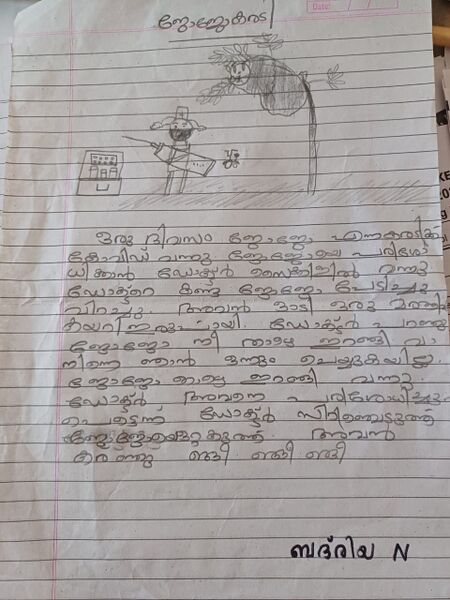 ജോജോകരടി
Date:
ഒരു ദിവസം ജോജോ എന്നകരടിക്ക്
കോവിഡ് വന്നു ജോജോയെ പരിശോ
ധിക്കാൻ ഡോക്ടർ സൈക്കിളിൽ വന്നു
ഡോക്ടറെ കണ്ടു ജോജോ പേടിച്ചു
വിറച്ചു. അവൻ ഓടി ഒരു മരത്തിൽ
കയറി ഇരുപ്പായി. ഡോക്ടർ പറഞ്ഞു
ജോജോ നീ താഴെ ഇറങ്ങി വാ
നിന്നെ ഞാൻ ഒന്നും ചെയ്യുകയില്ല.
ജോജോ താഴെ ഇറങ്ങി വന്നു.
ഡോക്ടർ അവനെ പരിശോധിച്ചു
പെട്ടെന്ന് ഡോക്ടർ സിറിഞ്ചെടുത്ത്
അവൻ
കരഞ്ഞു ങ്ങീ ങ്ങീ ങ്ങീ
ബദ്‌രിയ N